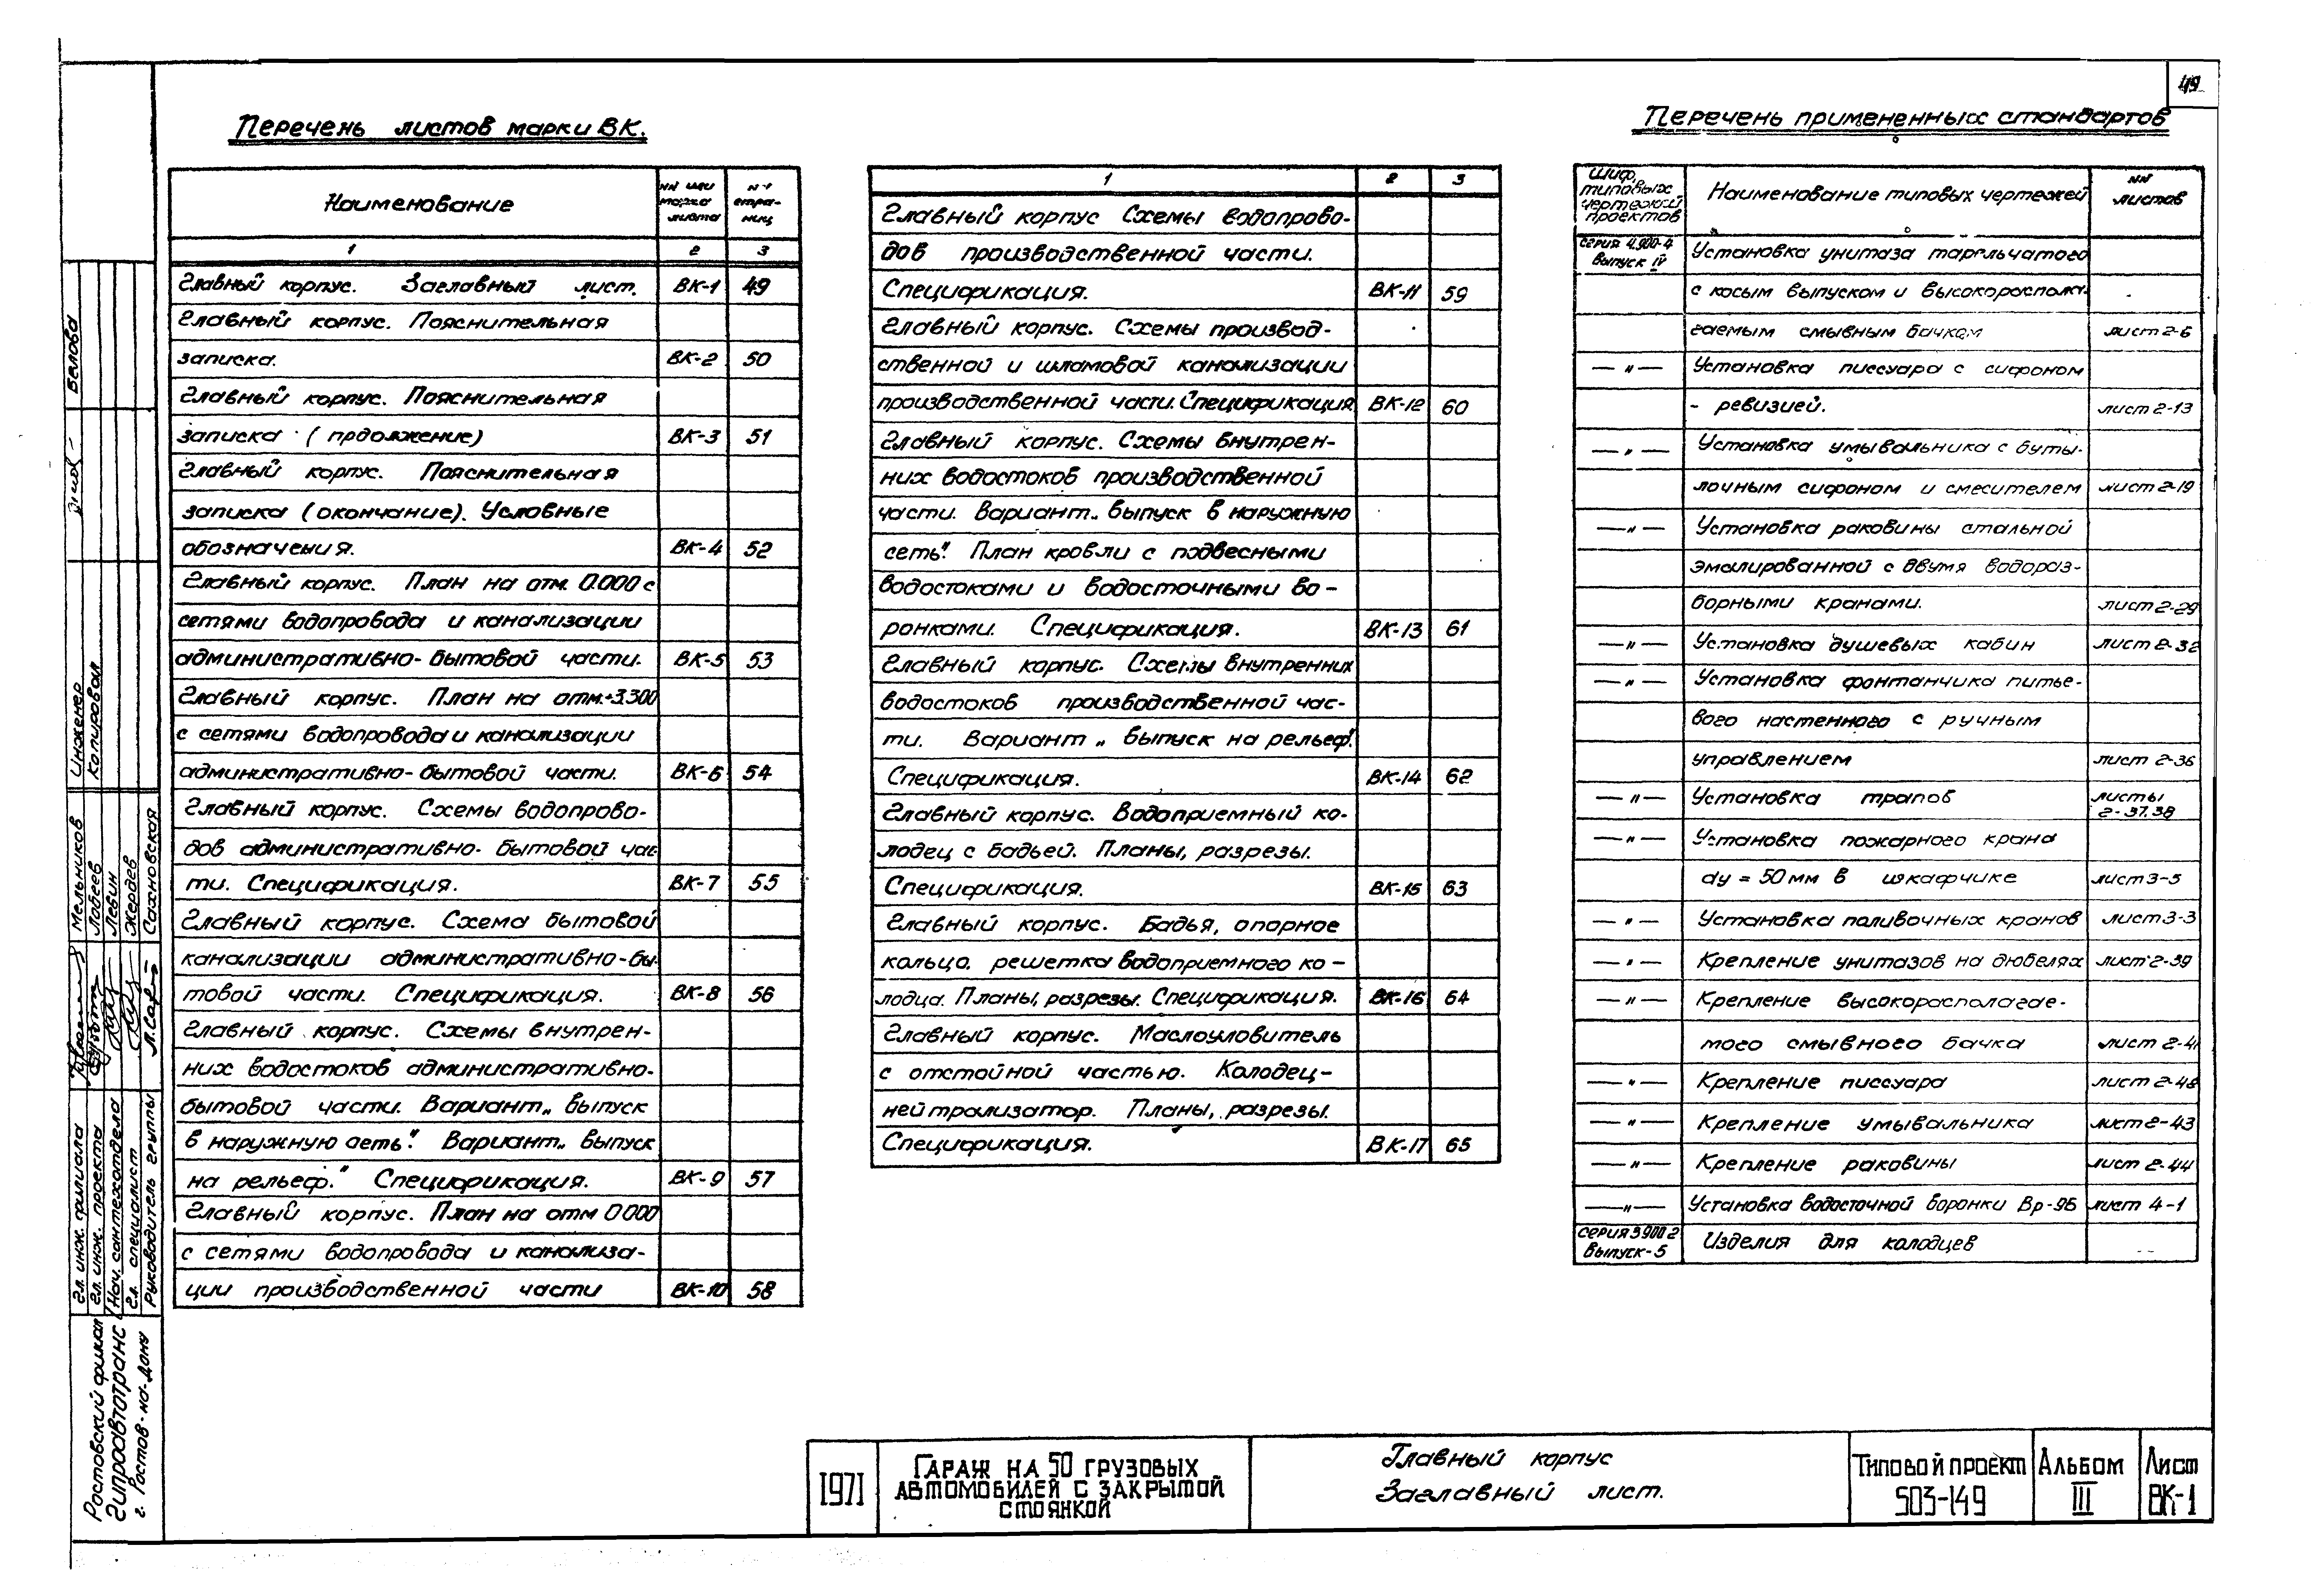 49
Перечень листов марки ВК.
Наименование
NN или марка листа
NN страниц
1 2 3
Главный корпус. Заглавный лист. ВК-1 49
Главный корпус. Пояснительная
записка. ВК-2 50
Главный корпус. Пояснительная
записка (прдолжение) ВК-3 51
Главный корпус. Пояснительная
записка (окончание). Условные
обозначения. ВК-4 52
Главный корпус. План на отм. 0.000 с
сетями водопровода и канализации
административно-бытовой части. ВК-5 53
Главный корпус. План на отм.+3.300
с сетями водопровода и канализации
административно-бытовой части. ВК-6 54
Главный корпус. Схемы водопрово-
дов административно-бытовой час-
ти. Спецификация. ВК-7 55
Главный корпус. Схема бытовой
канализации административно-бы-
товой части. Спецификация. ВК-8 56
Главный корпус. Схемы внутрен-
них водостоков административно-
бытовой части. Вариант „ выпуск
в наружную сеть". Вариант „ выпуск
на рельеф." Спецификация. ВК-9 57
Главный корпус. План на отм 0 000
с сетями водопровода и канализа-
ции производственной части ВК-10 58
1 2 3
Главный корпус Схемы водопрово-
дов производственной части.
Спецификация. ВК-11 59
Главный корпус. Схемы производ-
ственной и шламовой канализации
производственной части. Спецификация ВК-12 60
Главный корпус. Схемы внутрен-
них водостоков производственной
части. Вариант „ выпуск в наружную
сеть". План кровли с подвесными
водостоками и водосточными во-
ронками. Спецификация. ВК-13 61
Главный корпус. Схемы внутренних
водостоков производственной час-
ти. Вариант „ выпуск на рельеф".
Спецификация. ВК-14 62
Главный корпус. Водоприемный ко-
лодец с бадьей. Планы, разрезы.
Спецификация. ВК-15 63
Главный корпус. Бадья, опорное
кольцо, решетка водоприемного ко-
лодца. Планы, разрезы. Спецификация. ВК-16 64
Главный корпус. Маслоуловитель
с отстойной частью. Колодец-
нейтрализатор. Планы, разрезы.
Спецификация. ВК-17 65
Перечень примененных стандартов
Шиф. типовых чертежей проектов
Наименование типовых чертежей
NN листов
серия 4.900-4 выпуск IV Установка унитаза тарельчатого
с косым выпуском и высокораспола-
гаемым смывным бачком лист 2-6
— " — Установка писсуара с сифоном
- ревизией. лист 2-13
— " — Установка умывальника с буты-
лочным сифоном и смесителем лист 2-19
— " — Установка раковины стальной
эмалированной с двумя водораз-
борными кранами. лист 2-29
— " — Установка душевых кабин лист 2-32
— " — Установка фонтанчика питье-
вого настенного с ручным
управлением лист 2-36
— " — Установка трапов листы 2-37.38
— " — Установка пожарного крана
dy = 50 мм в шкафчике лист 3-5
— " — Установка поливочных кранов лист 3-3
— " — Крепление унитазов на дюбелях лист 2-39
— " — Крепление высокорасполагае-
мого смывного бачка лист 2-41
— " — Крепление писсуара лист 2-48
— " — Крепление умывальника лист 2-43
— " — Крепление раковины лист 2-44
— " — Установка водосточной воронки Вр-9Б лист 4-1
серия 3 900 2 выпуск-5 Изделия для колодцев
1971
Гараж на 50 грузовых
автомобилей с закрытой
стоянкой
Главный корпус
Заглавный лист.
Типовой проект
503-149
Альбом
III
Лист
ВК-1
Ростовский филиал
Гипроавтотранс
г. Ростов-на-Дону
Гл. инж. филиала Мельников
Гл. инж. проекта Лобеев
Нач. сантехотдела Левин
Гл. специалист Жердев
Руководитель группы Сахновская
Инженер Белова
Копировал